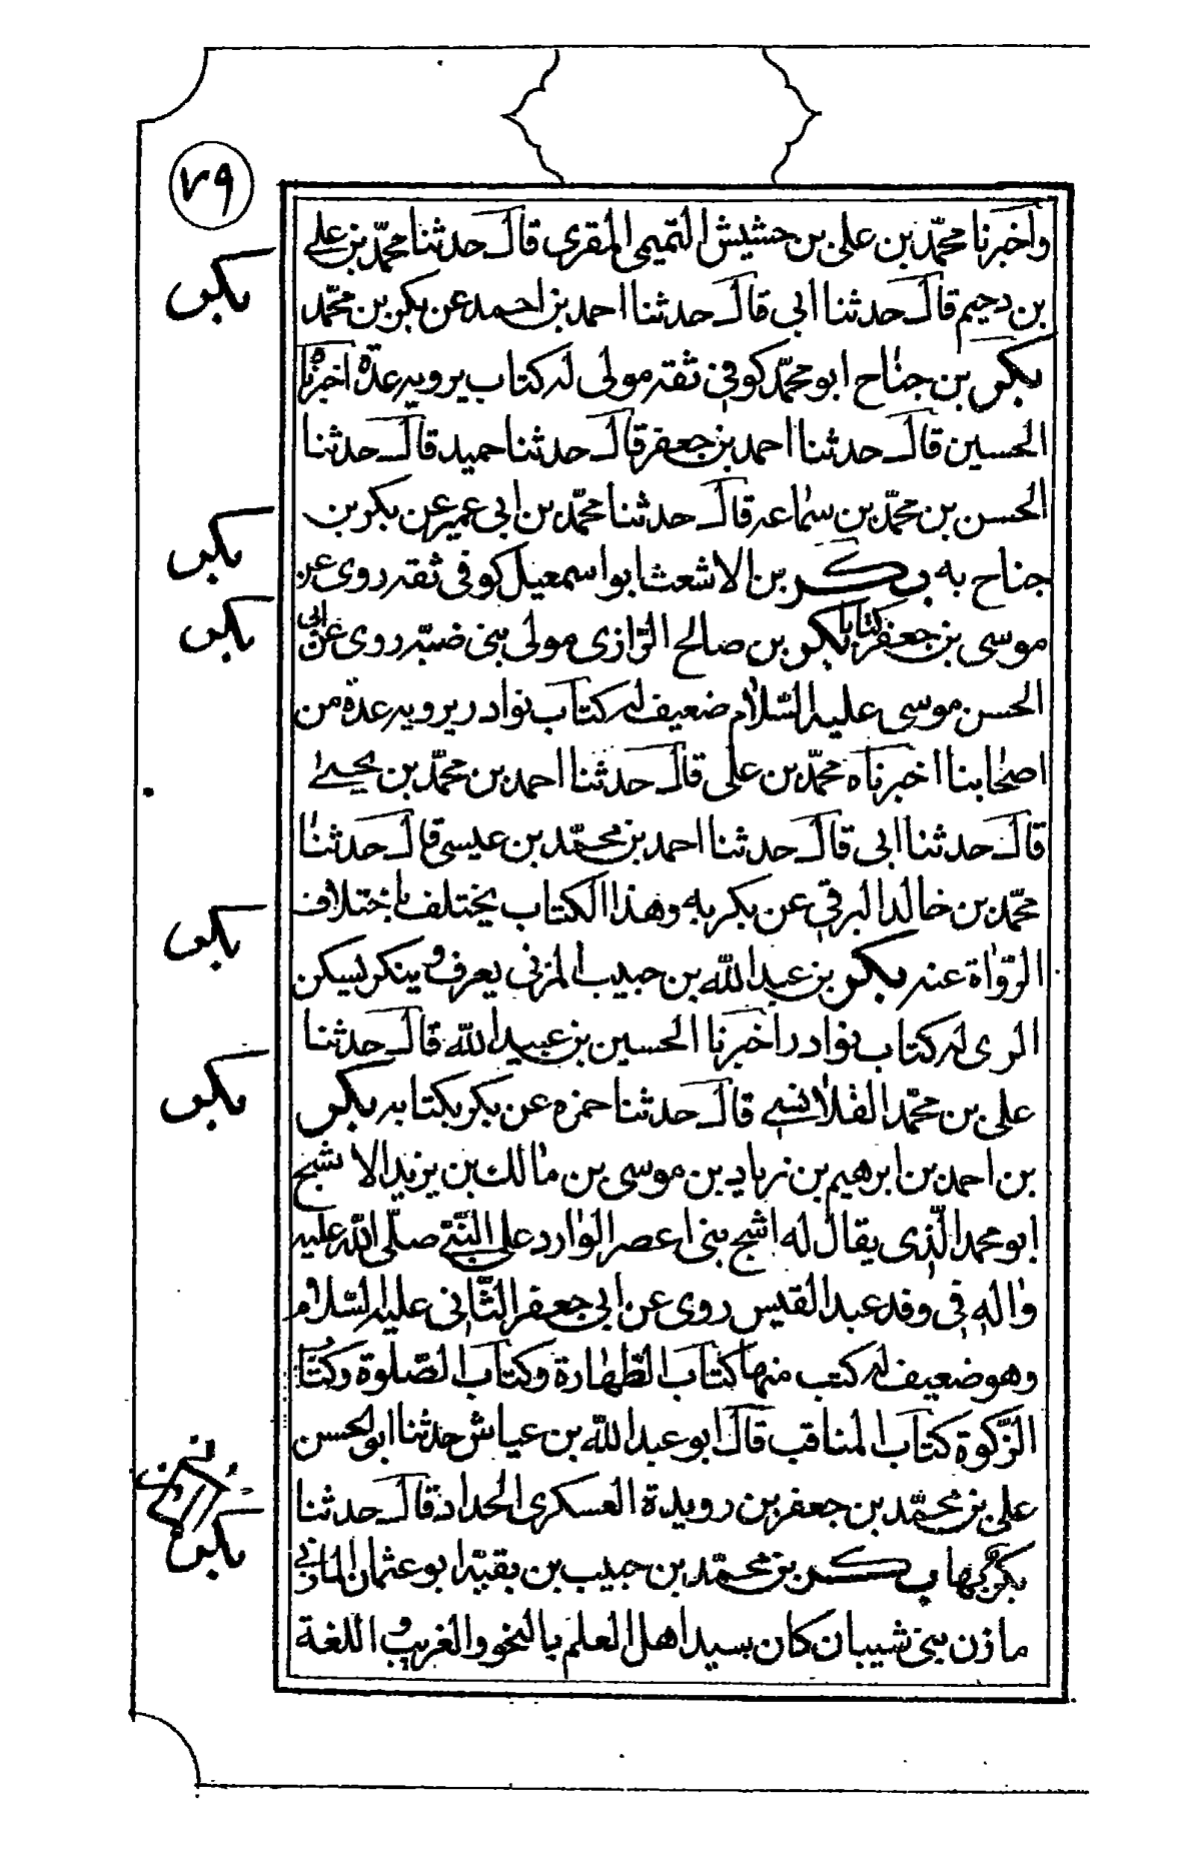 ٧٩
واخبرنا محمّد بن علی بن حشیش التمیمی المقری قال حدثنا محمّد بن علی
بن دحیم قال حدثنا ابی قال حدثنا احمد بن احمد عن بکر بن محمّد
بکر
بکر بن جناح ابو محمّد کوفی ثقه مولی له کتاب یرویه عدّة اخبرنا
الحسین قال حدثنا احمد بن جعفر قال حدثنا حمید قال حدثنا
الحسن بن محمّد بن سماعه قال حدثنا محمّد بن ابی عمیر عن بکر بن
بکر
جناح به بکر بن الاشعث ابو اسمعیل کوفی ثقه روی عن
موسی بن جعفر کتابا بکر بن صالح الرّازی مولی بنی ضبّه روی عن ابی
بکر
الحسن موسی علیه السّلام ضعیف له کتاب نوادر یرویه عدة من
اصحابنا اخبرناه محمّد بن علی قال حدثنا احمد بن محمّد بن یحیی
قال حدثنا ابی قال حدثنا احمد بن محمّد بن عیسی قال حدثنا
محمّد بن خالد البرقی عن بکر به وهذا الکتاب یختلف باختلاف
بکر
الرّواة عنه بکر بن عبد اللّه بن حبیب المزنی یعرف و ینکر یسکن
الری له کتاب نوادر اخبرنا الحسین بن عبید اللّه قال حدثنا
علی بن محمّد القلانسی قال حدثنا حمزه عن بکر بکتابه بکر
بکر
بن احمد بن ابرهیم بن زیاد بن موسی بن مالك بن یزید الاشج
ابو محمد الّذی یقال له اشج بنی اعصر الوارد علی النّبیّ صلّی اللّه علیه
واله فی وفد عبد القیس روی عن ابی جعفر الثّانی علیه السّلام
وهو ضعیف له کتب منها کتاب الطّهارة وکتاب الصّلوة وکتاب
الزّکوة کتاب المناقب قال ابو عبد اللّه بن عیاش حدثنا ابو الحسن
علی بن محمّد بن جعفر بن رویدة العسکری الحداد قال حدثنا
بکر بها بکر بن محمّد بن حبیب بن بقیّة ابو عثمان المازنی
بکر
مازن بنی شیبان کان سید اهل العلم بالنحو والغریب و اللغة